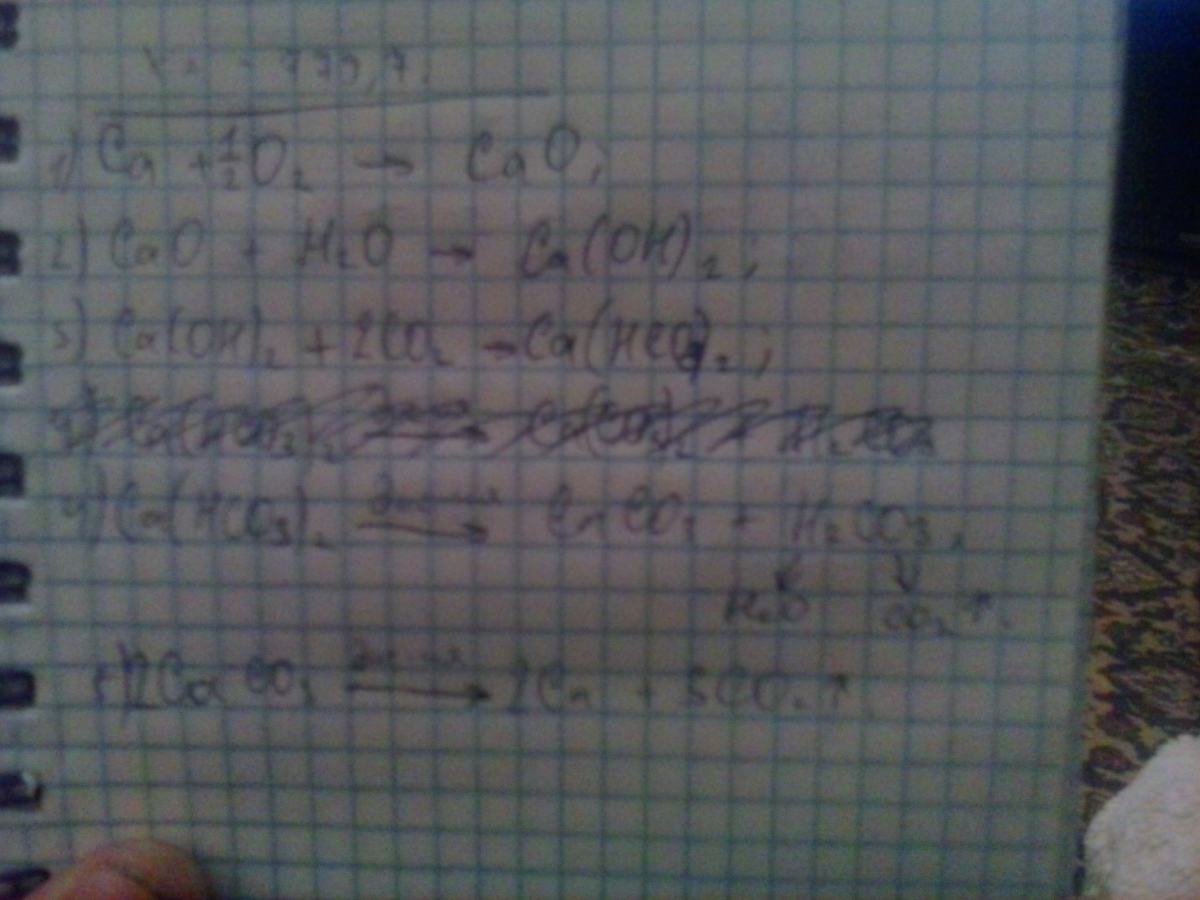 779,7.
1) Ca + 1/2 O₂ → CaO;
2) CaO + H₂O → Ca(OH)₂;
3) Ca(OH)₂ + 2CO₂ → Ca(HCO₃)₂;
4) Ca(HCO₃)₂ → CaCO₃ + H₂CO₃.
H₂O CO₂↑.
5) 2CaCO₃ → 2Ca + 3CO₂↑